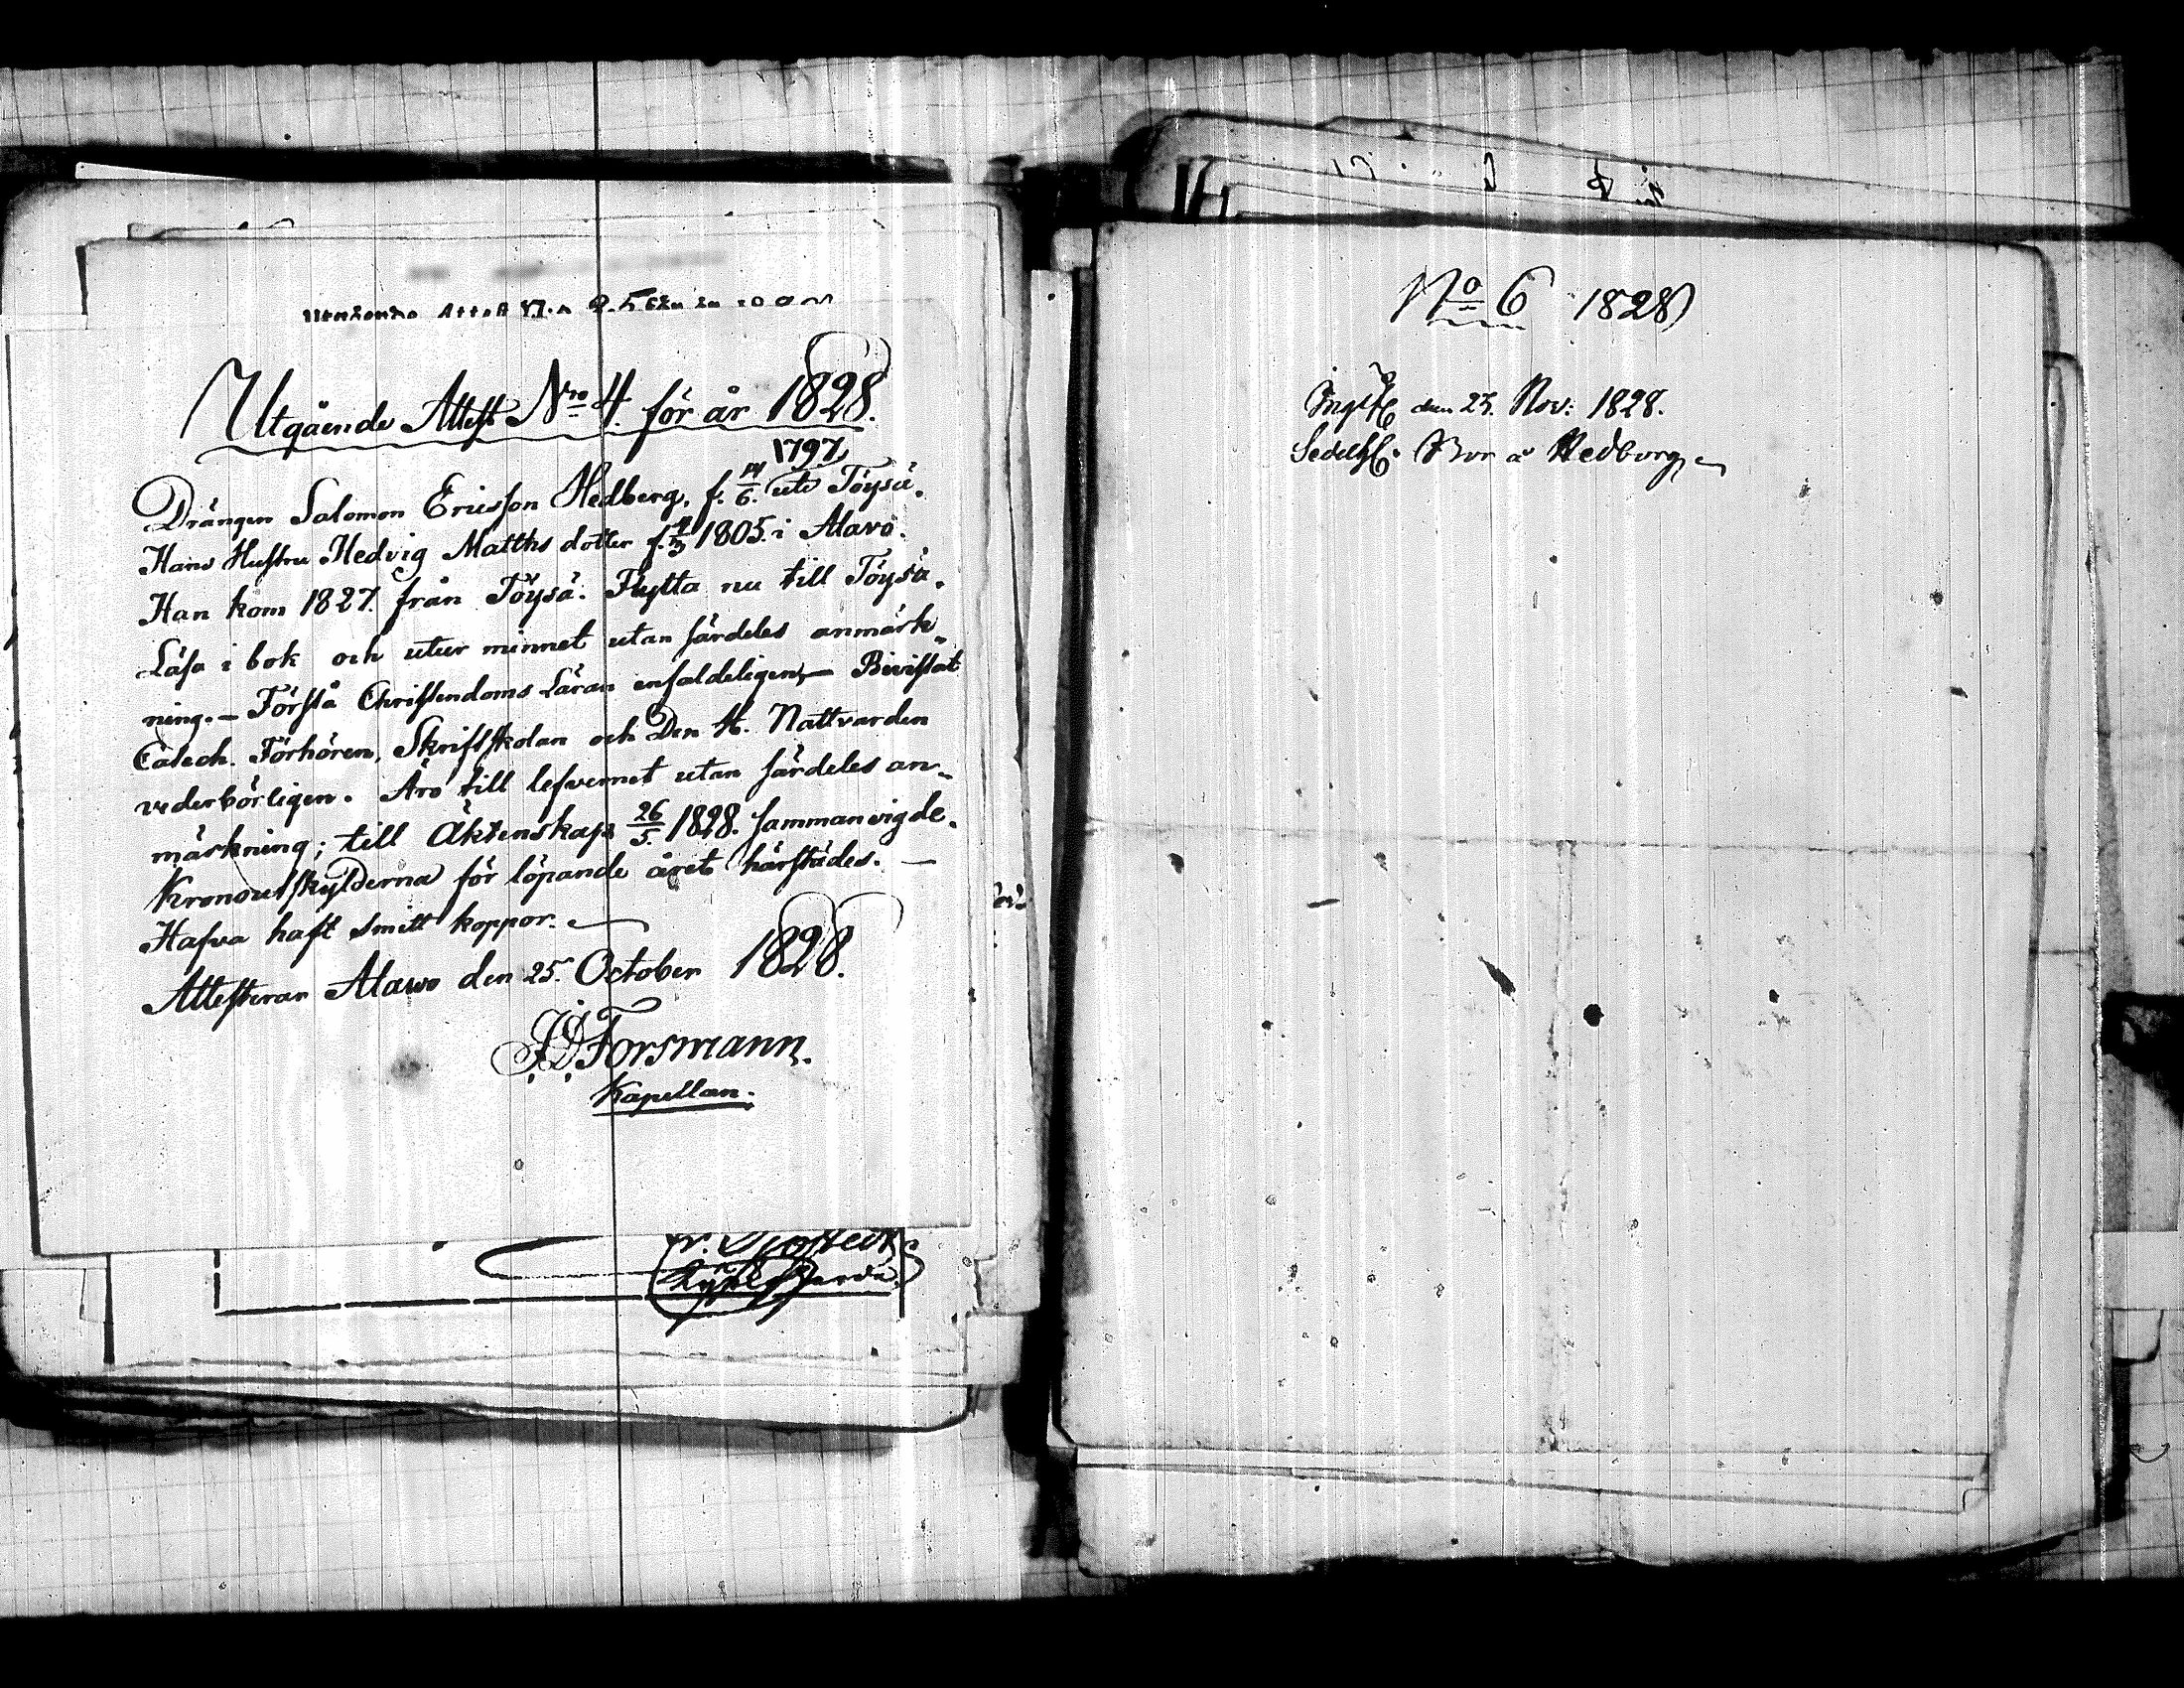 Utgående Attest Nro 4. för år 1828.
1797
Drängen Salomon Ericsson Hedberg, f. 14/6. uti Töysä.
Hans Hustru Hedvig Matths dotter f. 1805. i Alavo.
Han kom 1827. från Töysä. Flytta nu till Töysä.
Läsa i bok och utur minnet utan särdeles anmärk-
ning. – Förstå Christendoms Läran enfaldeligen, – Bivistat
Catech. Förhören, Skriftskolan och Den H. Nattvarden
vederbörligen. Äro till lefvernet utan särdeles an-
märkning; till Äktenskap 26/5. 1828. sammanvigde.
Kronoutskylderna för löpande året härstädes. –
Hafva haft smitt koppor. –
Attesterar Alawo den 25. October 1828.
J.D. Forsmann.
Kapellan.
No 6 1828
den 23. Nov: 1828.
Bor å Hedborg